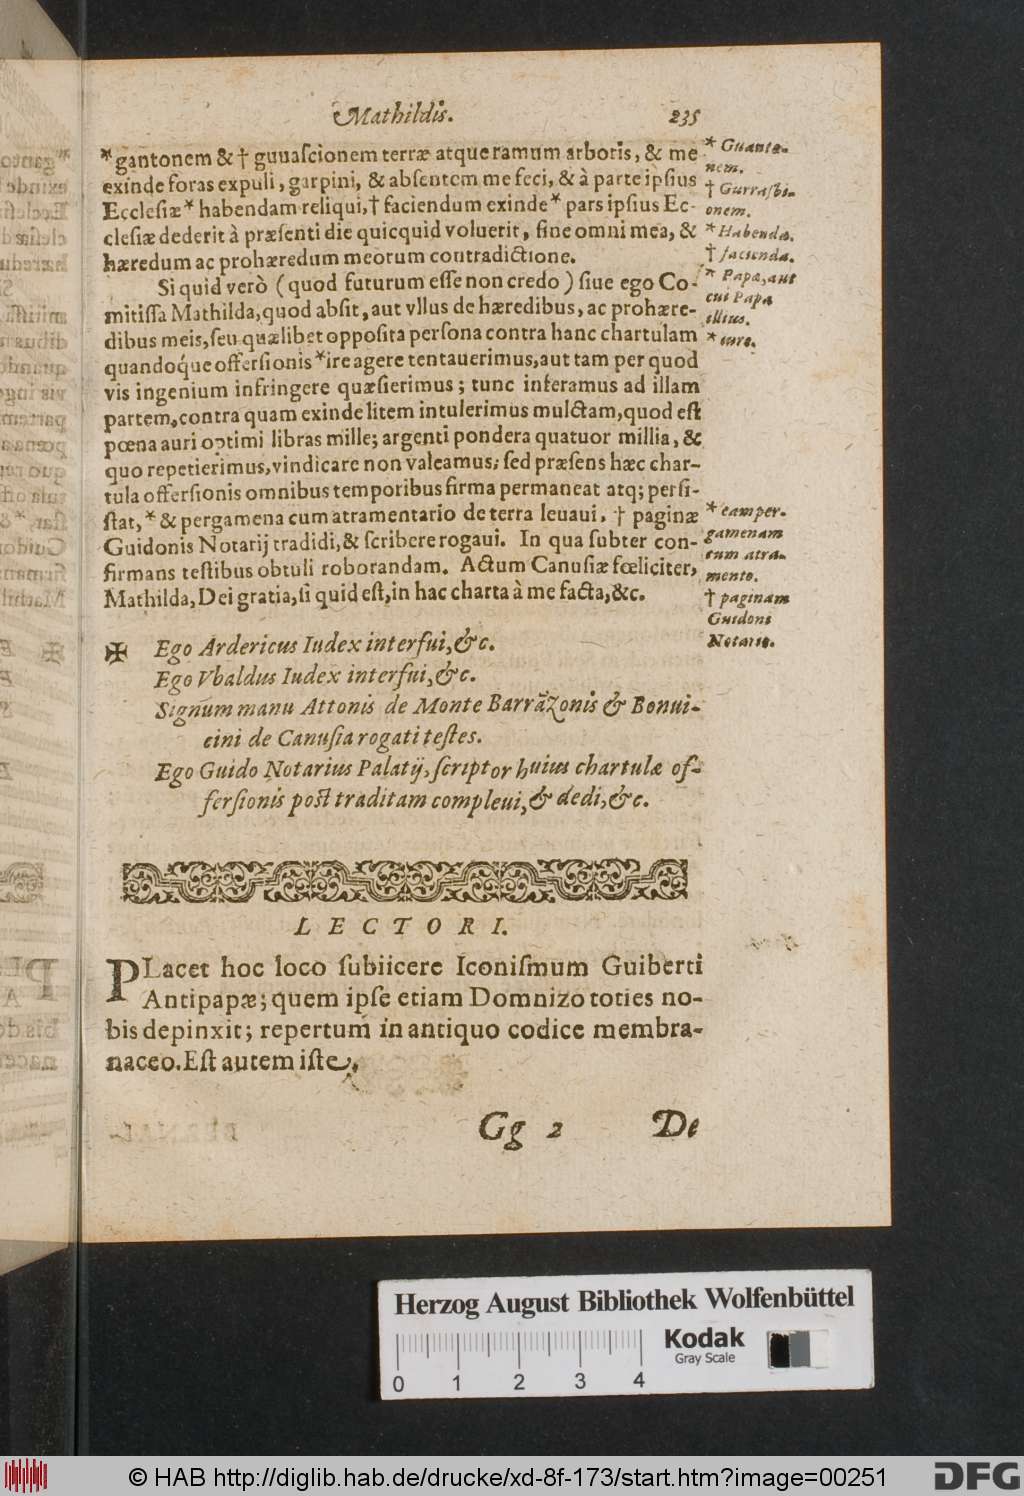 Mathildis. 235
*gantonem & † guuaſcionem terræ atque ramum arboris, & me
exinde foras expuli, garpini, & abſentem me feci, & à parte ipſius
Eccleſiæ * habendam reliqui, † faciendum exinde * pars ipſius Ec-
cleſiæ dederit à præſenti die quicquid voluerit, ſine omni mea, &
hæredum ac prohæredum meorum contradictione.
Si quid verò (quod futurum eſſe non credo) ſiue ego Co-
mitiſſa Mathilda, quod abſit, aut vllus de hæredibus, ac prohære-
dibus meis, ſeu quælibet oppoſita perſona contra hanc chartulam
quandoq́ue offerſionis *ire agere tentauerimus, aut tam per quod
vis ingenium infringere quæſierimus; tunc inferamus ad illam
partem, contra quam exinde litem intulerimus mulctam, quod eſt
pœna auri optimi libras mille; argenti pondera quatuor millia, &
quo repetierimus, vindicare non valeamus; ſed præſens hæc char-
tula offerſionis omnibus temporibus firma permaneat atq; perſi-
ſtat, * & pergamena cum atramentario de terra leuaui, † paginæ
Guidonis Notarij tradidi, & ſcribere rogaui. In qua ſubter con-
firmans teſtibus obtuli roborandam. Actum Canuſiæ fœliciter,
Mathilda, Dei gratia, ſi quid eſt, in hac charta à me facta, &c.
* Guanto-
nem.
† Gurraſci-
onem.
* Habenda.
† facienda.
* Papa, aut
cui Papa
illius.
* iure.
* eam per-
gamenam
cum atra-
mento.
† paginam
Guidoni
Notario.
✠ Ego Ardericus Iudex interfui, &c.
Ego Vbaldus Iudex interfui, &c.
Signum manu Attonis de Monte Barrãzonis & Bonui-
cini de Canuſia rogati teſtes.
Ego Guido Notarius Palatij, ſcriptor huius chartulæ of-
ferſionis poſt traditam compleui, & dedi, &c.
LECTORI.
PLacet hoc loco ſubiicere Iconiſmum Guiberti
Antipapæ; quem ipſe etiam Domnizo toties no-
bis depinxit; repertum in antiquo codice membra-
naceo. Eſt autem iſte.
Gg 2 De
Herzog August Bibliothek Wolfenbüttel
Kodak
Gray Scale
0 1 2 3 4
© HAB http://diglib.hab.de/drucke/xd-8f-173/start.htm?image=00251
DFG